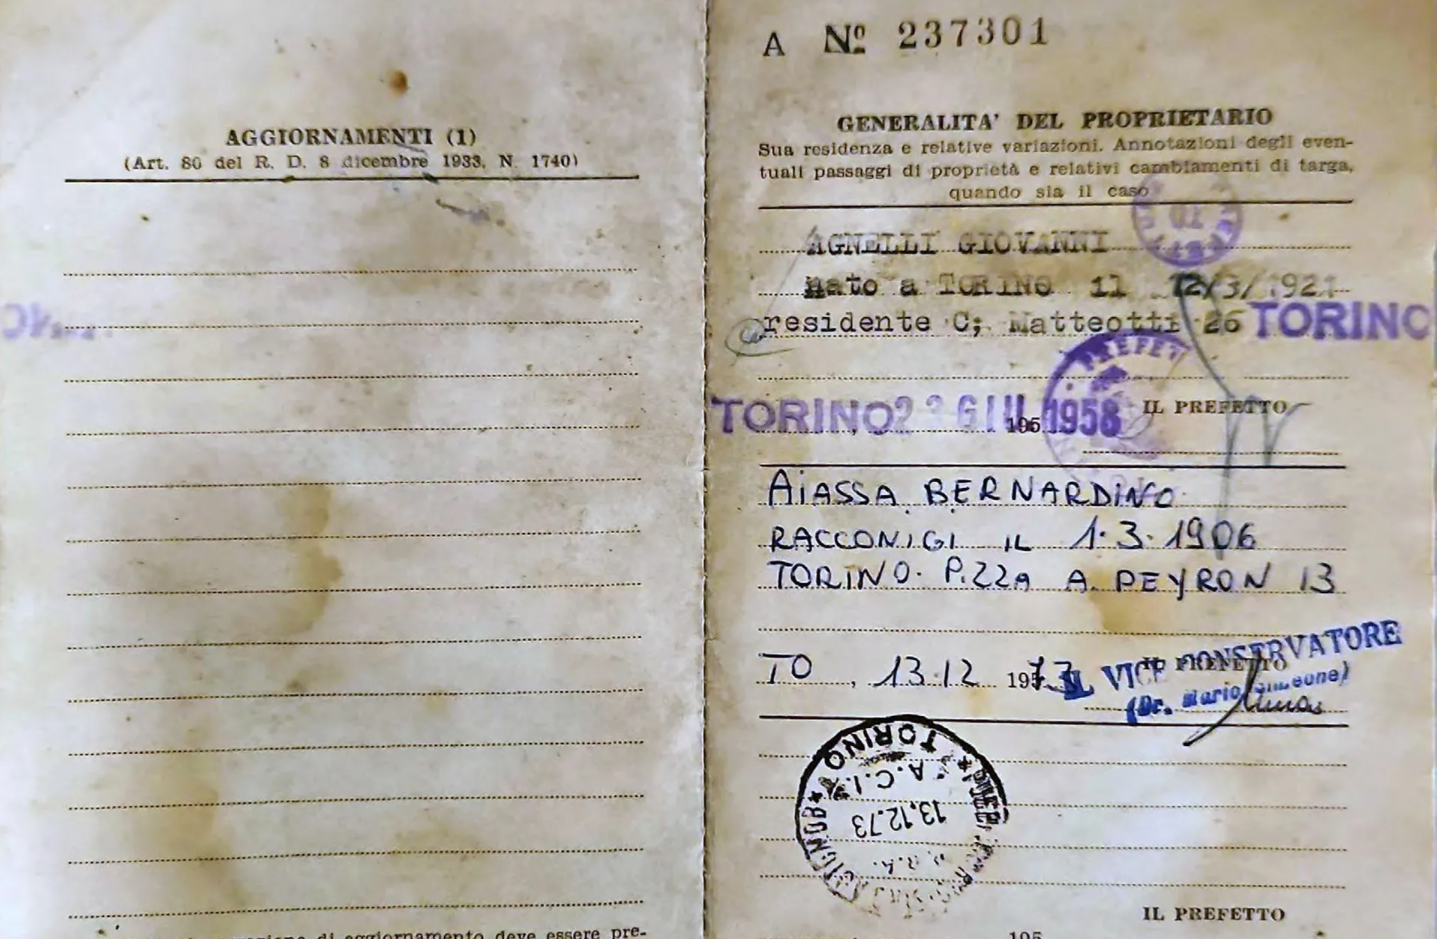 AGGIORNAMENTI (1)
(Art. 80 del R. D. 8 dicembre 1933, N. 1740)
di aggiornamento deve essere pre-
A Nº 237301
GENERALITA' DEL PROPRIETARIO
Sua residenza e relative variazioni. Annotazioni degli even-
tuali passaggi di proprietà e relativi cambiamenti di targa,
quando sia il caso
AGNELLI GIOVANNI
nato a TORINO il 12/3/1921
residente C; Matteotti 26 TORINO
TORINO 23 GIU 1958 195
IL PREFETTO
AIASSA BERNARDINO
RACCONIGI IL 1.3.1906
TORINO. P.ZZA A. PEYRON 13
TO, 13.12 1973 IL VICE CONSERVATORE
IL PREFETTO
(Dr. Mario Simeone)
TORINO
A.C.I.
13.12.73
P.R.A.
IL PREFETTO
195